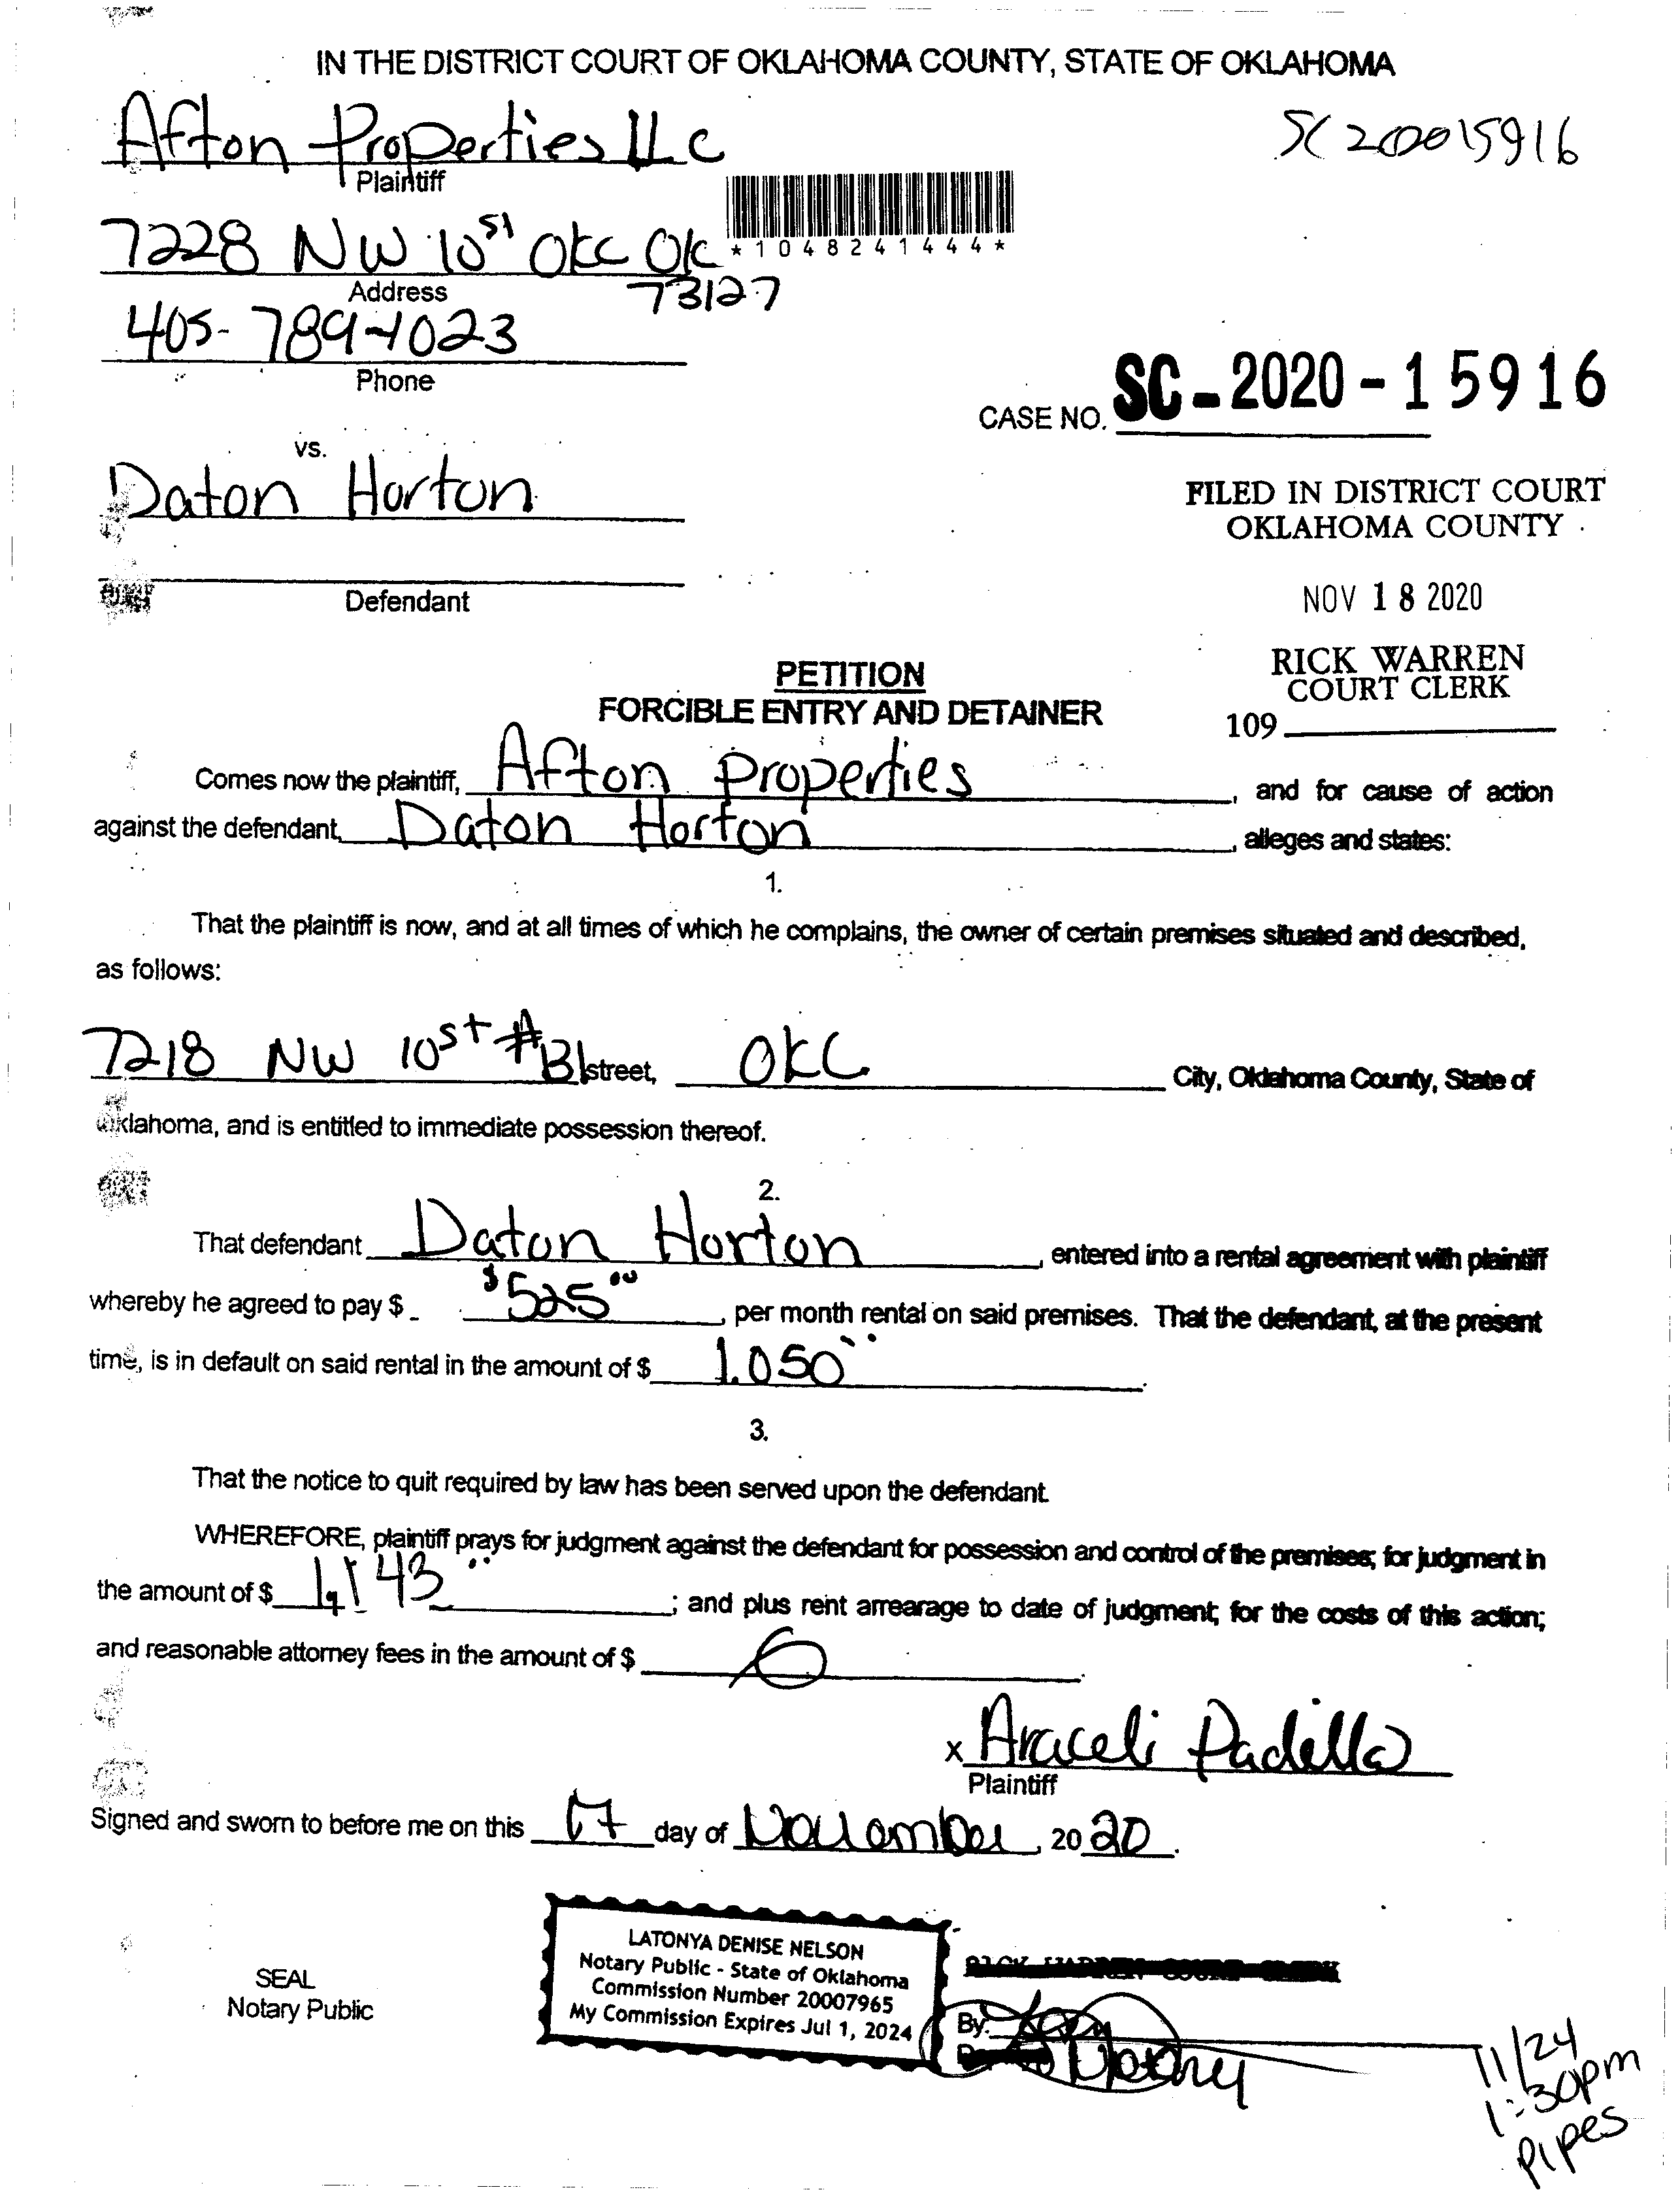 IN THE DISTRICT COURT OF OKLAHOMA COUNTY, STATE OF OKLAHOMA
Afton Properties LLC
SC20015916
Plaintiff
7228 NW 10st OKC OK
*1048241444*
73127
Address
405-789-1023
Phone
CASE NO. SC-2020-15916
vs.
Daton Horton
FILED IN DISTRICT COURT
OKLAHOMA COUNTY
Defendant
NOV 18 2020
RICK WARREN
COURT CLERK
109
PETITION
FORCIBLE ENTRY AND DETAINER
Comes now the plaintiff, Afton Properties, and for cause of action
against the defendant, Daton Horton, alleges and states:
1.
That the plaintiff is now, and at all times of which he complains, the owner of certain premises situated and described,
as follows:
7218 NW 10st #B street, OKC City, Oklahoma County, State of
Oklahoma, and is entitled to immediate possession thereof.
2.
That defendant Daton Horton, entered into a rental agreement with plaintiff
whereby he agreed to pay $ $525.00, per month rental on said premises. That the defendant, at the present
time, is in default on said rental in the amount of $ 1.050.
3.
That the notice to quit required by law has been served upon the defendant.
WHEREFORE, plaintiff prays for judgment against the defendant for possession and control of the premises; for judgment in
the amount of $ 1,143; and plus rent arrearage to date of judgment; for the costs of this action;
and reasonable attorney fees in the amount of $
x Araceli Padilla
Plaintiff
Signed and sworn to before me on this 17 day of November, 2020.
LATONYA DENISE NELSON
Notary Public - State of Oklahoma
Commission Number 20007965
My Commission Expires Jul 1, 2024
SEAL
Notary Public
RICK WARREN COURT CLERK
By:
Notary
11/24
1:30pm
Pipes